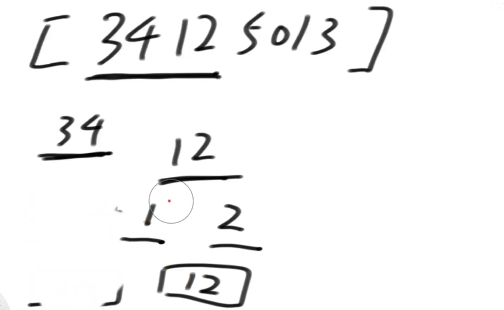 [ 3 4 1 2 5 0 1 3 ]
34 12
1 2
12